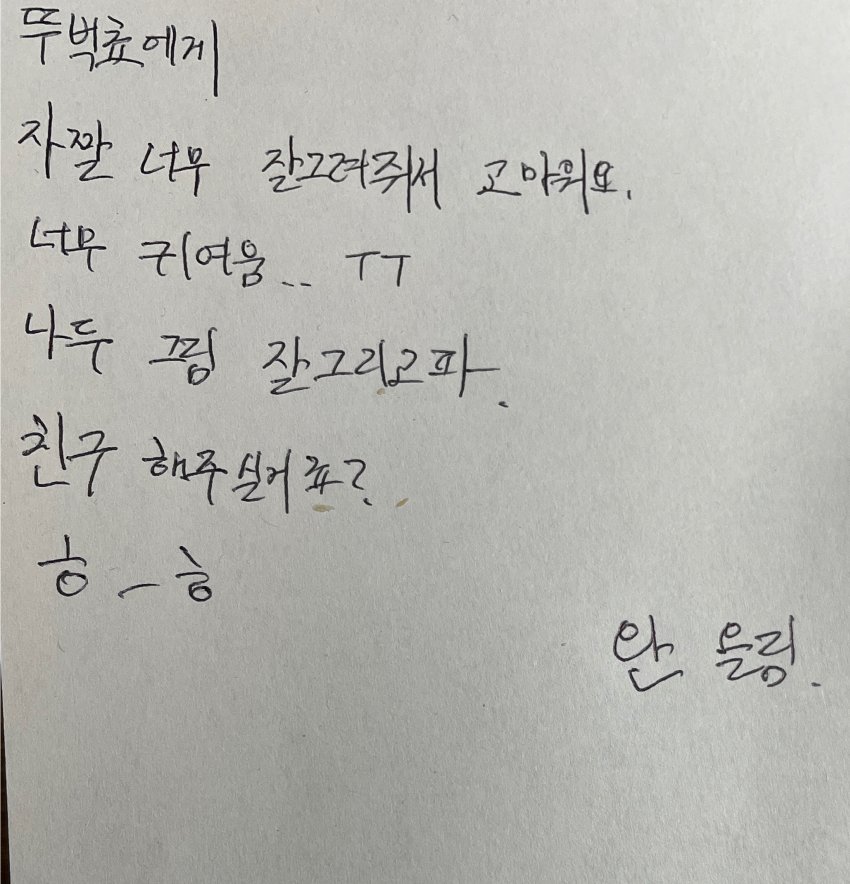 뚜벅쵸에게
자짤 너무 잘그려줘서 고마워요.
너무 귀여움.. ㅜㅜ
나두 끄림 잘그리고파.
친구 해주실거죠?
ㅎ_ㅎ
안 올림.